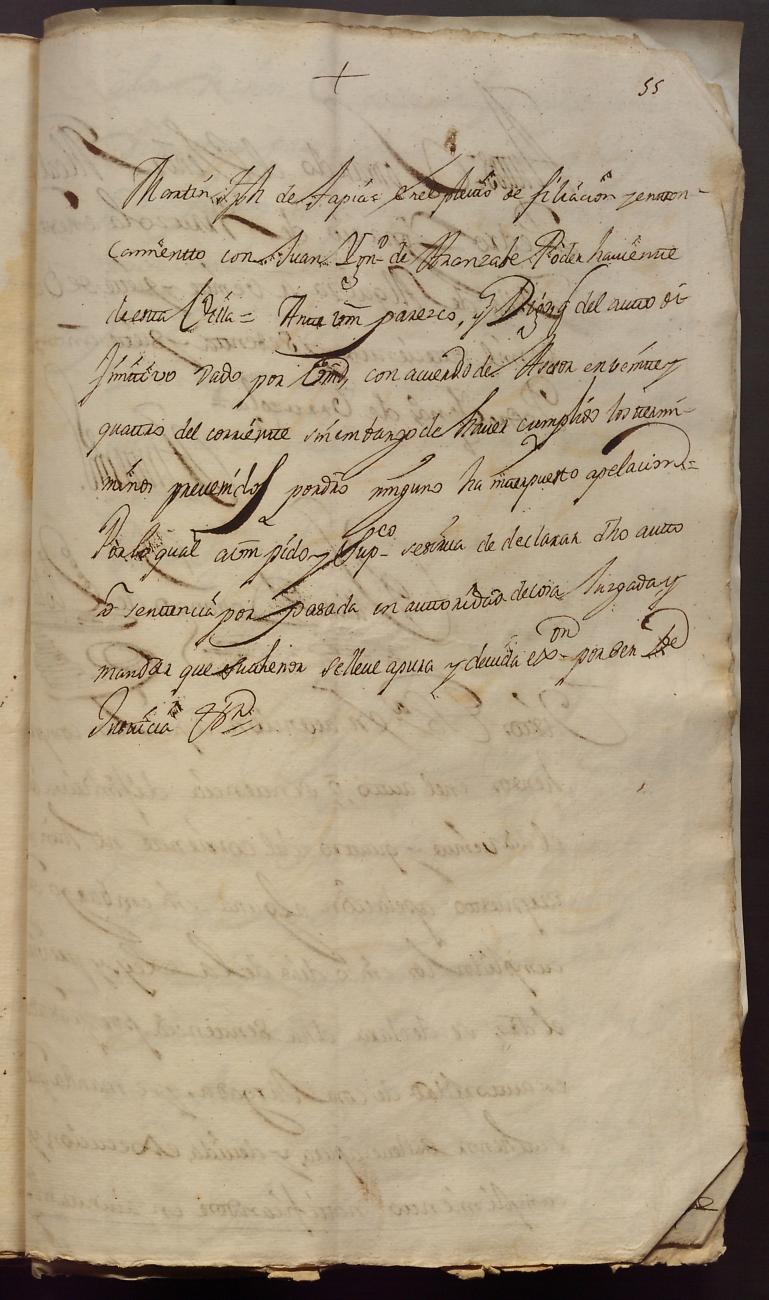 +
55
Martin Jph de Tapia = en el pleito de filiacion y entron-
camientto con Juan Ygn.º de Aranzabe Poder haviente
de esta Villa = Ante Vm parezco, y Digo q del autto di
finitivo dado por Vmd, con acuerdo de Asesor en veinte y
quattro del corriente sin embargo de haver cumplido los termi-
minos prevenidos por dro ninguno ha interpuesto apelacion =
Por lo qual a Vm pido y Sup.co se sirva de declarar dho autto
o sentencia por pasada en auttoridad de cosa Juzgada y
mandar que su thenor se lleve a pura y devida ex.on por ser de
Justicia &.ª